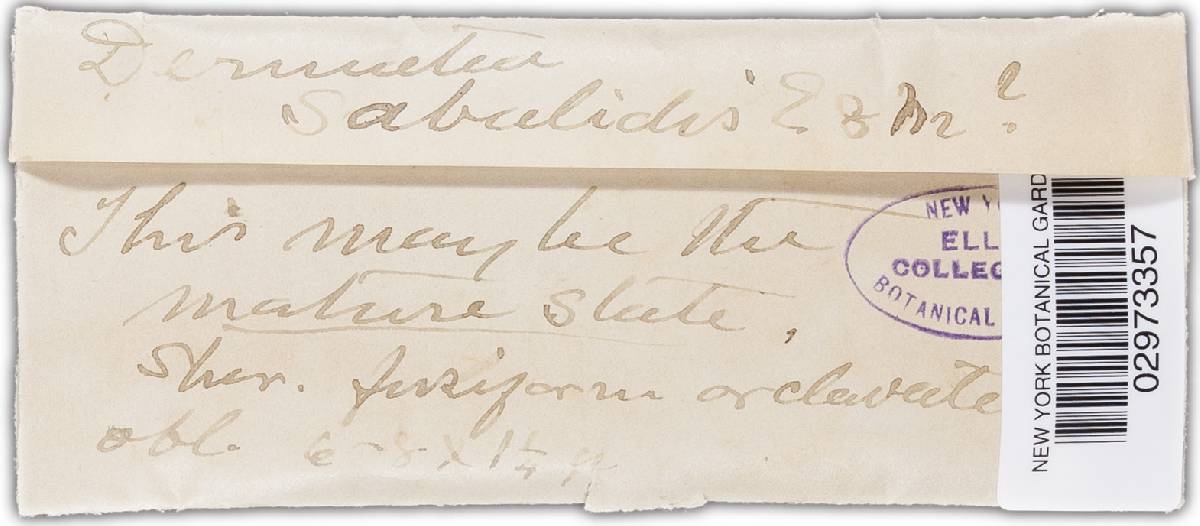 Dermatea
Sabalidis E & M ?
This may be the
mature state,
Spor. fusiform or clavate
obl. 6-8 X 1½
NEW Y
ELL
COLLEG
BOTANICAL
NEW YORK BOTANICAL GARD
02973357